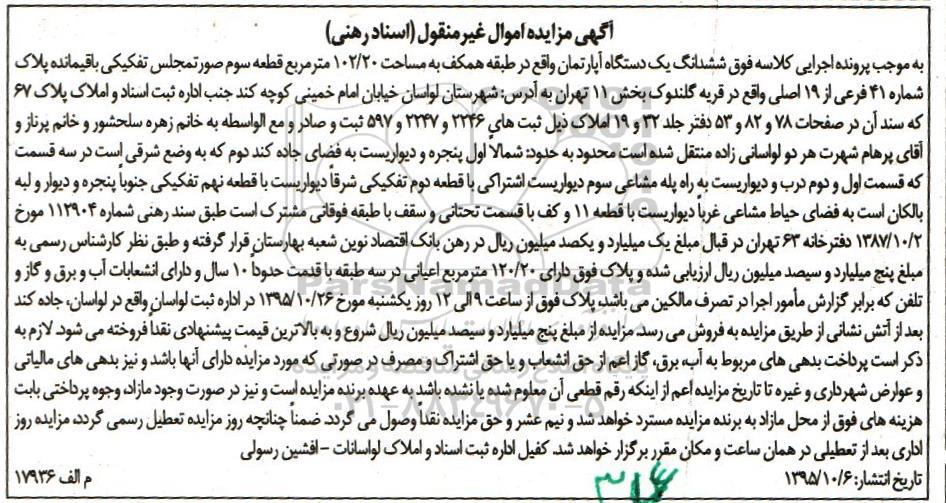 آگهی مزایده اموال غیرمنقول (اسناد رهنی)
به موجب پرونده اجرایی کلاسه فوق ششدانگ یک دستگاه آپارتمان واقع در طبقه همکف به مساحت ۱۰۲/۲۰ مترمربع قطعه سوم صورتمجلس تفکیکی باقیمانده پلاک
شماره ۴۱ فرعی از ۱۹ اصلی واقع در قریه گلندوک بخش ۱۱ تهران به آدرس: شهرستان لواسان خیابان امام خمینی کوچه کند جنب اداره ثبت اسناد و املاک پلاک ۶۷
که سند آن در صفحات ۷۸ و ۸۲ و ۵۳ دفتر جلد ۳۲ و ۱۹ املاک ذیل ثبت های ۲۲۴۶ و ۲۲۴۷ و ۵۹۷ ثبت و صادر و مع الواسطه به خانم زهره سلحشور و خانم پرناز و
آقای پرهام شهرت هر دو لواسانی زاده منتقل شده است محدود به حدود: شمالاً اول پنجره و دیواریست به فضای جاده کند دوم که به وضع شرقی است در سه قسمت
که قسمت اول و دوم درب و دیواریست به راه پله مشاعی سوم دیواریست اشتراکی با قطعه دوم تفکیکی شرقاً دیواریست با قطعه نهم تفکیکی جنوباً پنجره و دیوار و لبه
بالکان است به فضای حیاط مشاعی غرباً دیواریست با قطعه ۱۱ و کف با قسمت تحتانی و سقف با طبقه فوقانی مشترک است طبق سند رهنی شماره ۱۱۲۹۰۴ مورخ
۱۳۸۷/۱۰/۲ دفترخانه ۶۳ تهران در قبال مبلغ یک میلیارد و یکصد میلیون ریال در رهن بانک اقتصاد نوین شعبه بهارستان قرار گرفته و طبق نظر کارشناس رسمی به
مبلغ پنج میلیارد و سیصد میلیون ریال ارزیابی شده و پلاک فوق دارای ۱۲۰/۲۰ مترمربع اعیانی در سه طبقه با قدمت حدوداً ۱۰ سال و دارای انشعابات آب و برق و گاز و
تلفن که برابر گزارش مأمور اجرا در تصرف مالکین می باشد، پلاک فوق از ساعت ۹ الی ۱۲ روز یکشنبه مورخ ۱۳۹۵/۱۰/۲۶ در اداره ثبت لواسان واقع در لواسان، جاده کند
بعد از آتش نشانی از طریق مزایده به فروش می رسد. مزایده از مبلغ پنج میلیارد و سیصد میلیون ریال شروع و به بالاترین قیمت پیشنهادی نقداً فروخته می شود. لازم به
ذکر است پرداخت بدهی های مربوط به آب، برق، گاز اعم از حق انشعاب و یا حق اشتراک و مصرف در صورتی که مورد مزایده دارای آنها باشد و نیز بدهی های مالیاتی
و عوارض شهرداری و غیره تا تاریخ مزایده اعم از اینکه رقم قطعی آن معلوم شده یا نشده باشد به عهده برنده مزایده است و نیز در صورت وجود مازاد، وجوه پرداختی بابت
هزینه های فوق از محل مازاد به برنده مزایده مسترد خواهد شد و نیم عشر و حق مزایده نقداً وصول می گردد. ضمناً چنانچه روز مزایده تعطیل رسمی گردد، مزایده روز
اداری بعد از تعطیلی در همان ساعت و مکان مقرر برگزار خواهد شد. کفیل اداره ثبت اسناد و املاک لواسانات - افشین رسولی
تاریخ انتشار: ۱۳۹۵/۱۰/۶ م الف ۱۷۹۳۶
ParsNamadData
۰۲۱-۸۸۳۴۹۶۷۰-۵